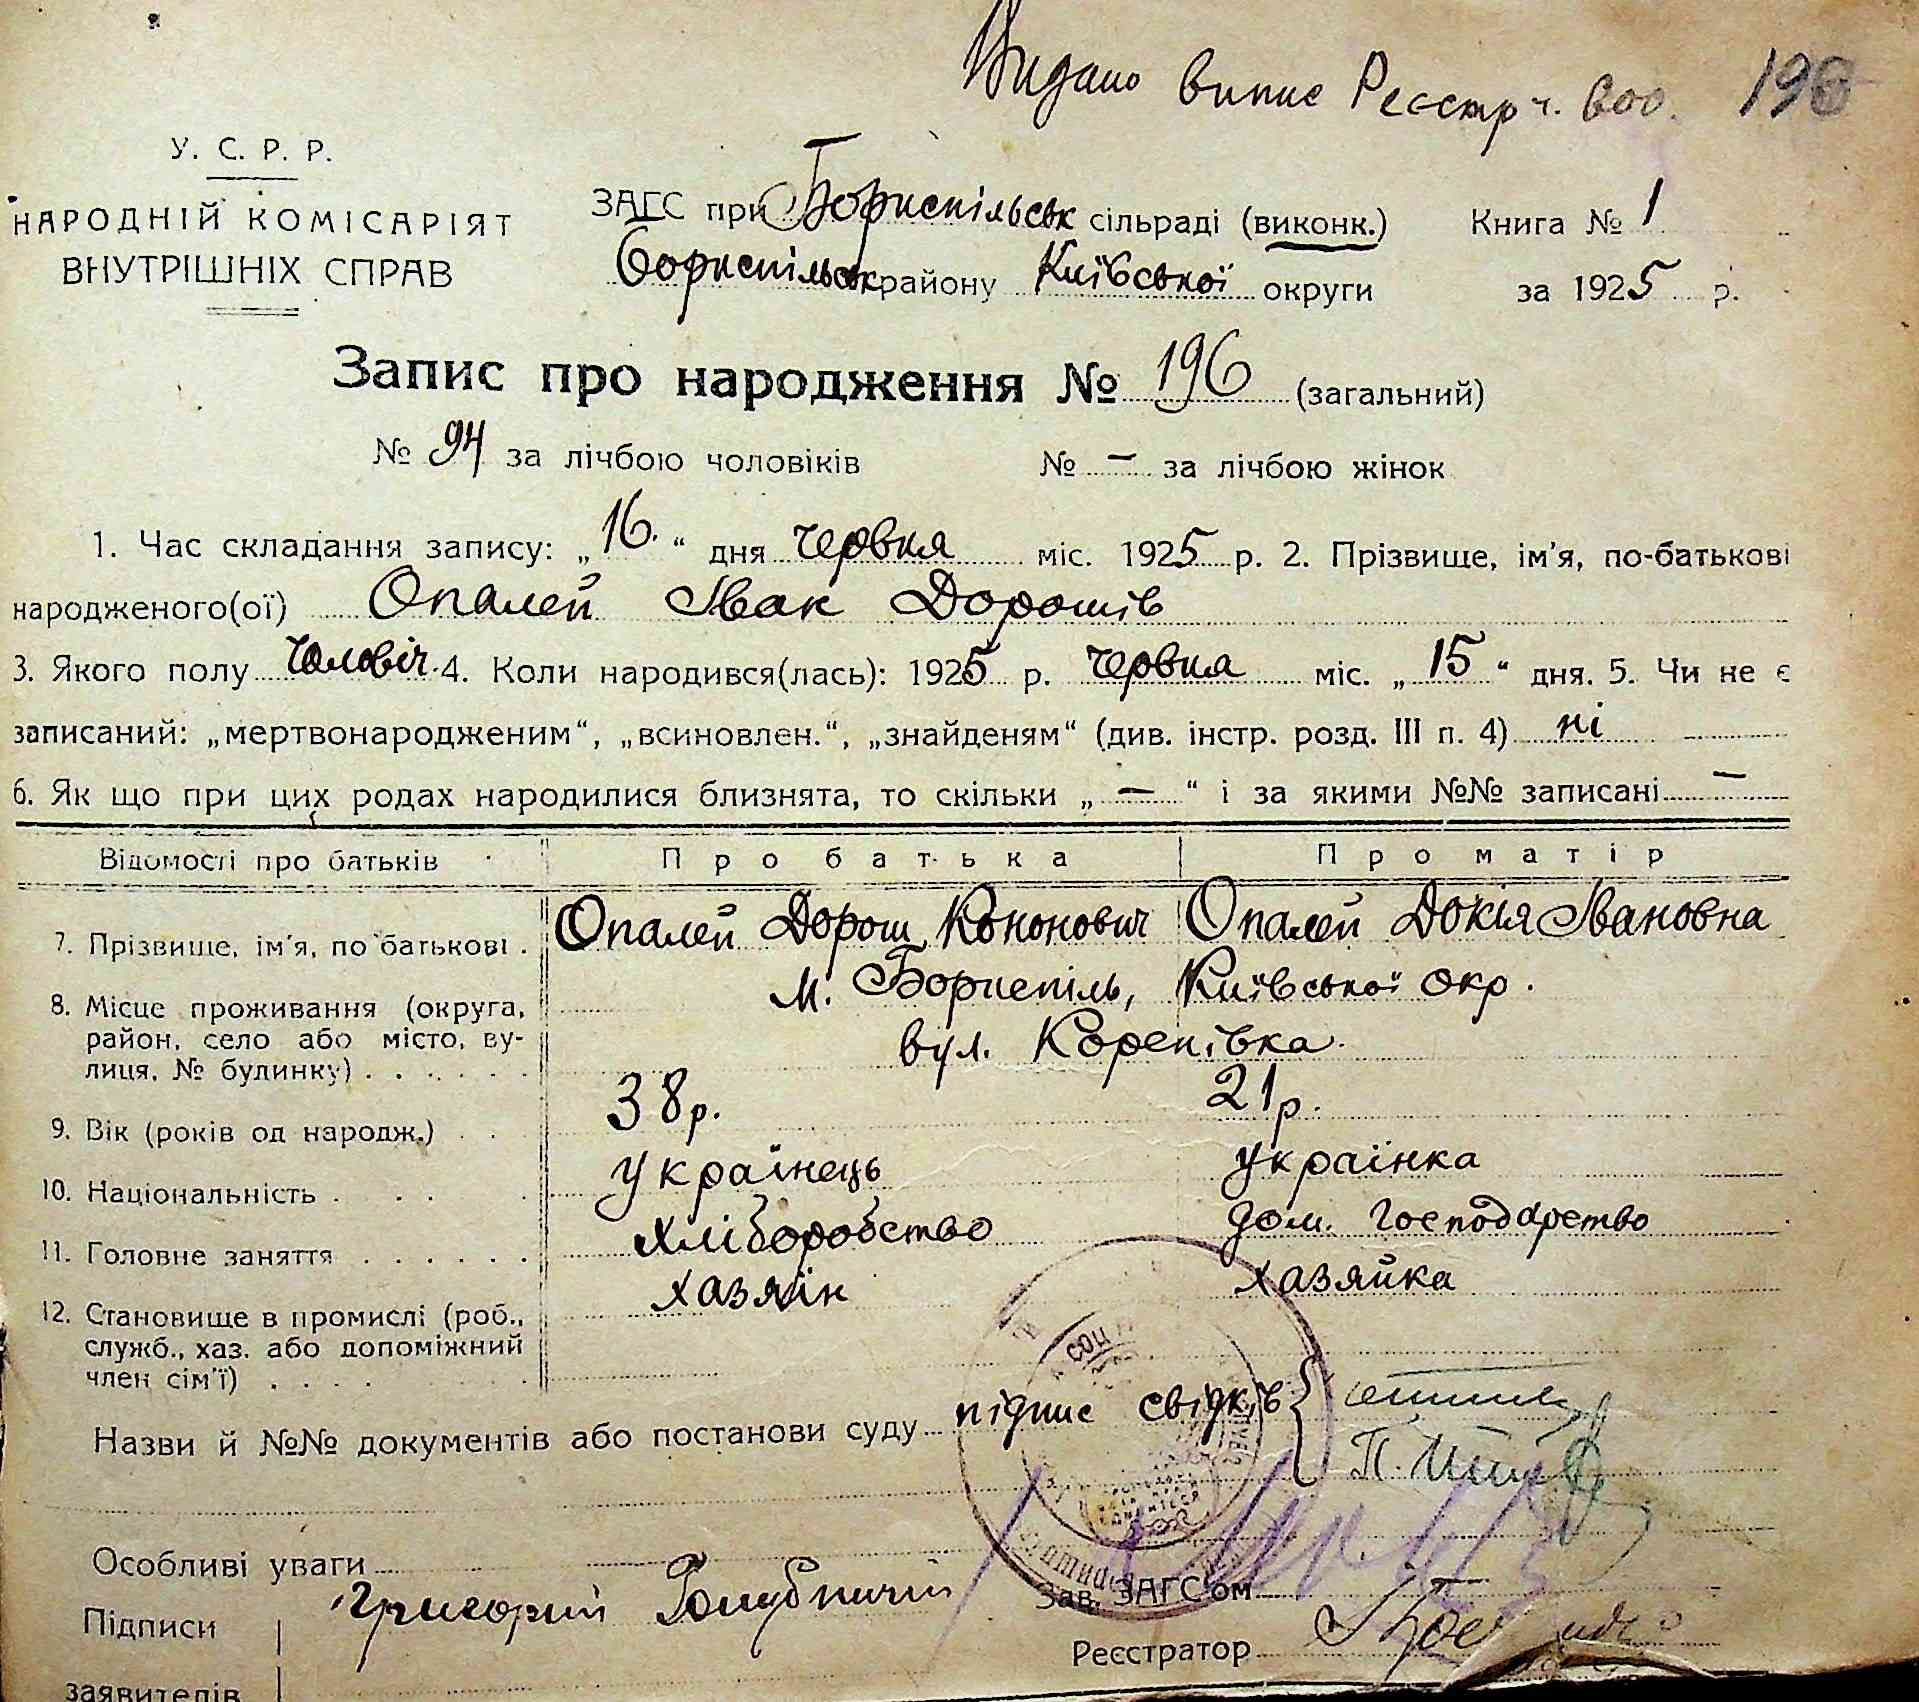 Видано випис Реєстр ч. 600. 196
У. С. Р. Р.
НАРОДНІЙ КОМІСАРІЯТ
ВНУТРІШНІХ СПРАВ
ЗАГС при Бориспільськ сільраді (виконк.) Книга № 1
Бориспільськ району Київської округи за 1925 р.
Запис про народження № 196 (загальний)
№ 94 за лічбою чоловіків № — за лічбою жінок
1. Час складання запису: „16.“ дня червня міс. 1925 р. 2. Прізвище, ім'я, по-батькові
народженого(ої) Опалей Іван Дорошів
3. Якого полу чоловіч. 4. Коли народився(лась): 1925 р. червня міс. „15“ дня. 5. Чи не є
записаний: „мертвонародженим“, „всиновлен.“, „знайденям“ (див. інстр. розд. III п. 4) ні
6. Як що при цих родах народилися близнята, то скільки „—“ і за якими №№ записані —
Відомості про батьків Про батька Про матір
7. Прізвище, ім'я, по батькові . Опалей Дорош Кононович Опалей Докія Івановна
8. Місце проживання (округа, м. Бориспіль, Київської окр.
район, село або місто, ву- вул. Коренівка.
лиця, № будинку) . . . . . .
9. Вік (років од народж.) . . 38 р. 21 р.
10. Національність . . . . українець українка
11. Головне заняття . . . . . . хліборобство дом. господарство
12. Становище в промислі (роб., хазяїн хазяйка
служб., хаз. або допоміжний
член сім'ї) . . . .
Назви й №№ документів або постанови суду підпис свідків {
П.
Особливі уваги
Підписи Григорий Голубничий Зав. ЗАГС'ом
Реєстратор
заявителів